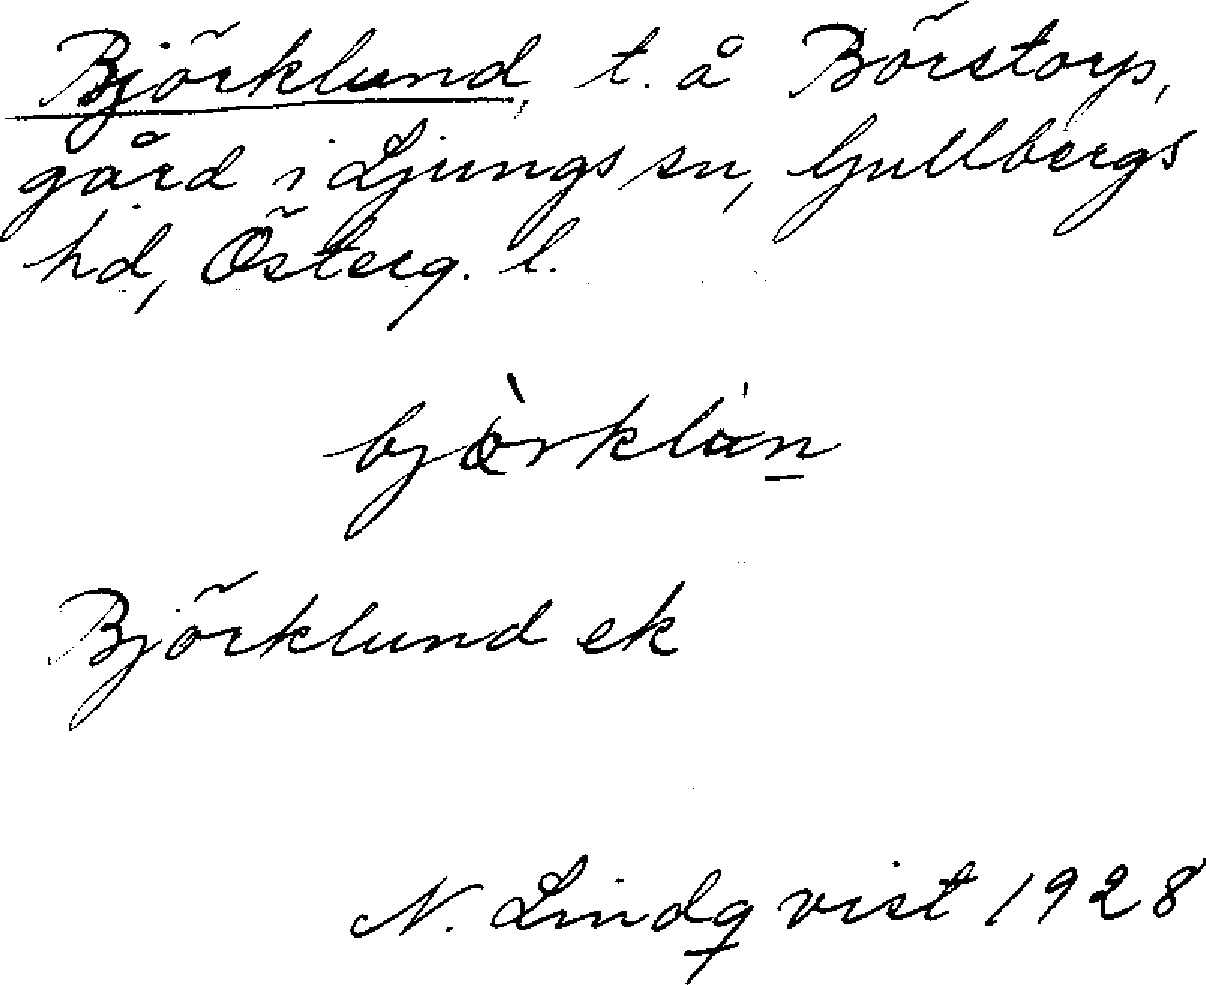 Björklund, t. å Börstorp,
gård i Ljungs sn, Gullbergs
hd, Österg. l.
bjò̀rklán
Björklund ek
N. Lindqvist 1928